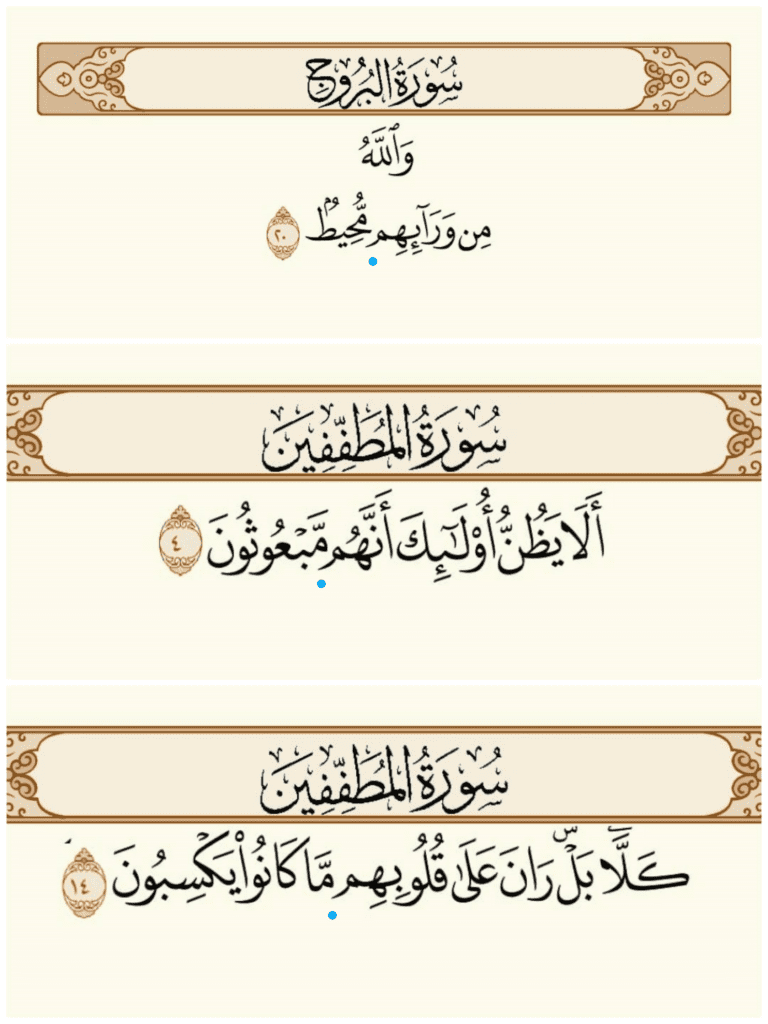 سُورَةُ البُرُوجِ
وَٱللَّهُ
مِن وَرَآئِهِم مُّحِيطٌۢ ٢٠
سُورَةُ المُطَفِّفِينَ
أَلَا يَظُنُّ أُو۟لَـٰٓئِكَ أَنَّهُم مَّبْعُوثُونَ ٤
سُورَةُ المُطَفِّفِينَ
كَلَّا ۖ بَلْ ۜ رَانَ عَلَىٰ قُلُوبِهِم مَّا كَانُوا۟ يَكْسِبُونَ ١٤